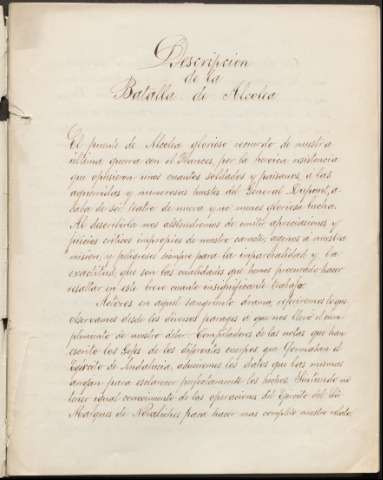 Descripcion
de la
Batalla de Alcolea
El puente de Alcolea glorioso recuerdo de nuestra
última guerra con el Francés, por la heroica resistencia
que opusieron unos cuantos soldados y paisanos, a las
aguerridas y numerosas huestes del General Dupont, a-
caba de ser teatro de nueva y no menos gloriosa lucha.
Al describirla nos abstendremos de emitir apreciaciones y
juicios criticos impropios de nuestro caracter, agenos a nuestra
mision, y peligrosos siempre para la imparcialidad y la
exactitud, que son las cualidades que hemos procurado hacer
resaltar en este breve cuanto insignificante trabajo.
Actores en aquel sangriento drama, referiremos lo que
observamos desde los diversos parages a que nos llevó el cum-
plimiento de nuestro deber. Compiladores de las notas que han
escrito los Gefes de los diferentes cuerpos que formaban el
Egército de Andalucia, aduciremos los datos que las mismas
arrojan para esclarecer perfectamente los hechos. Sintiendo no
tener igual conocimiento de las operaciones del Egercito del
Marques de Novaliches para hacer mas completo nuestro relato.